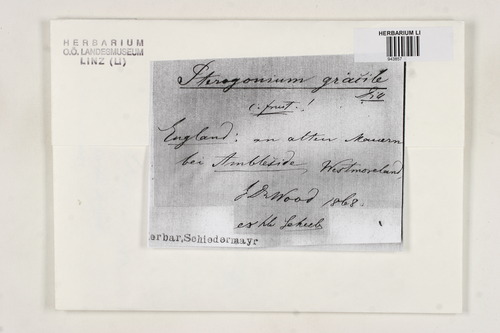 HERBARIUM
O.Ö. LANDESMUSEUM
LINZ (LI)
HERBARIUM LI
943957
Pterogonium gracile
c. fruct.!
England: an alten Mauern
bei Ambleside, Westmoreland
J. D. Wood 1868.
ex hb.
erbar, Schiedermayr